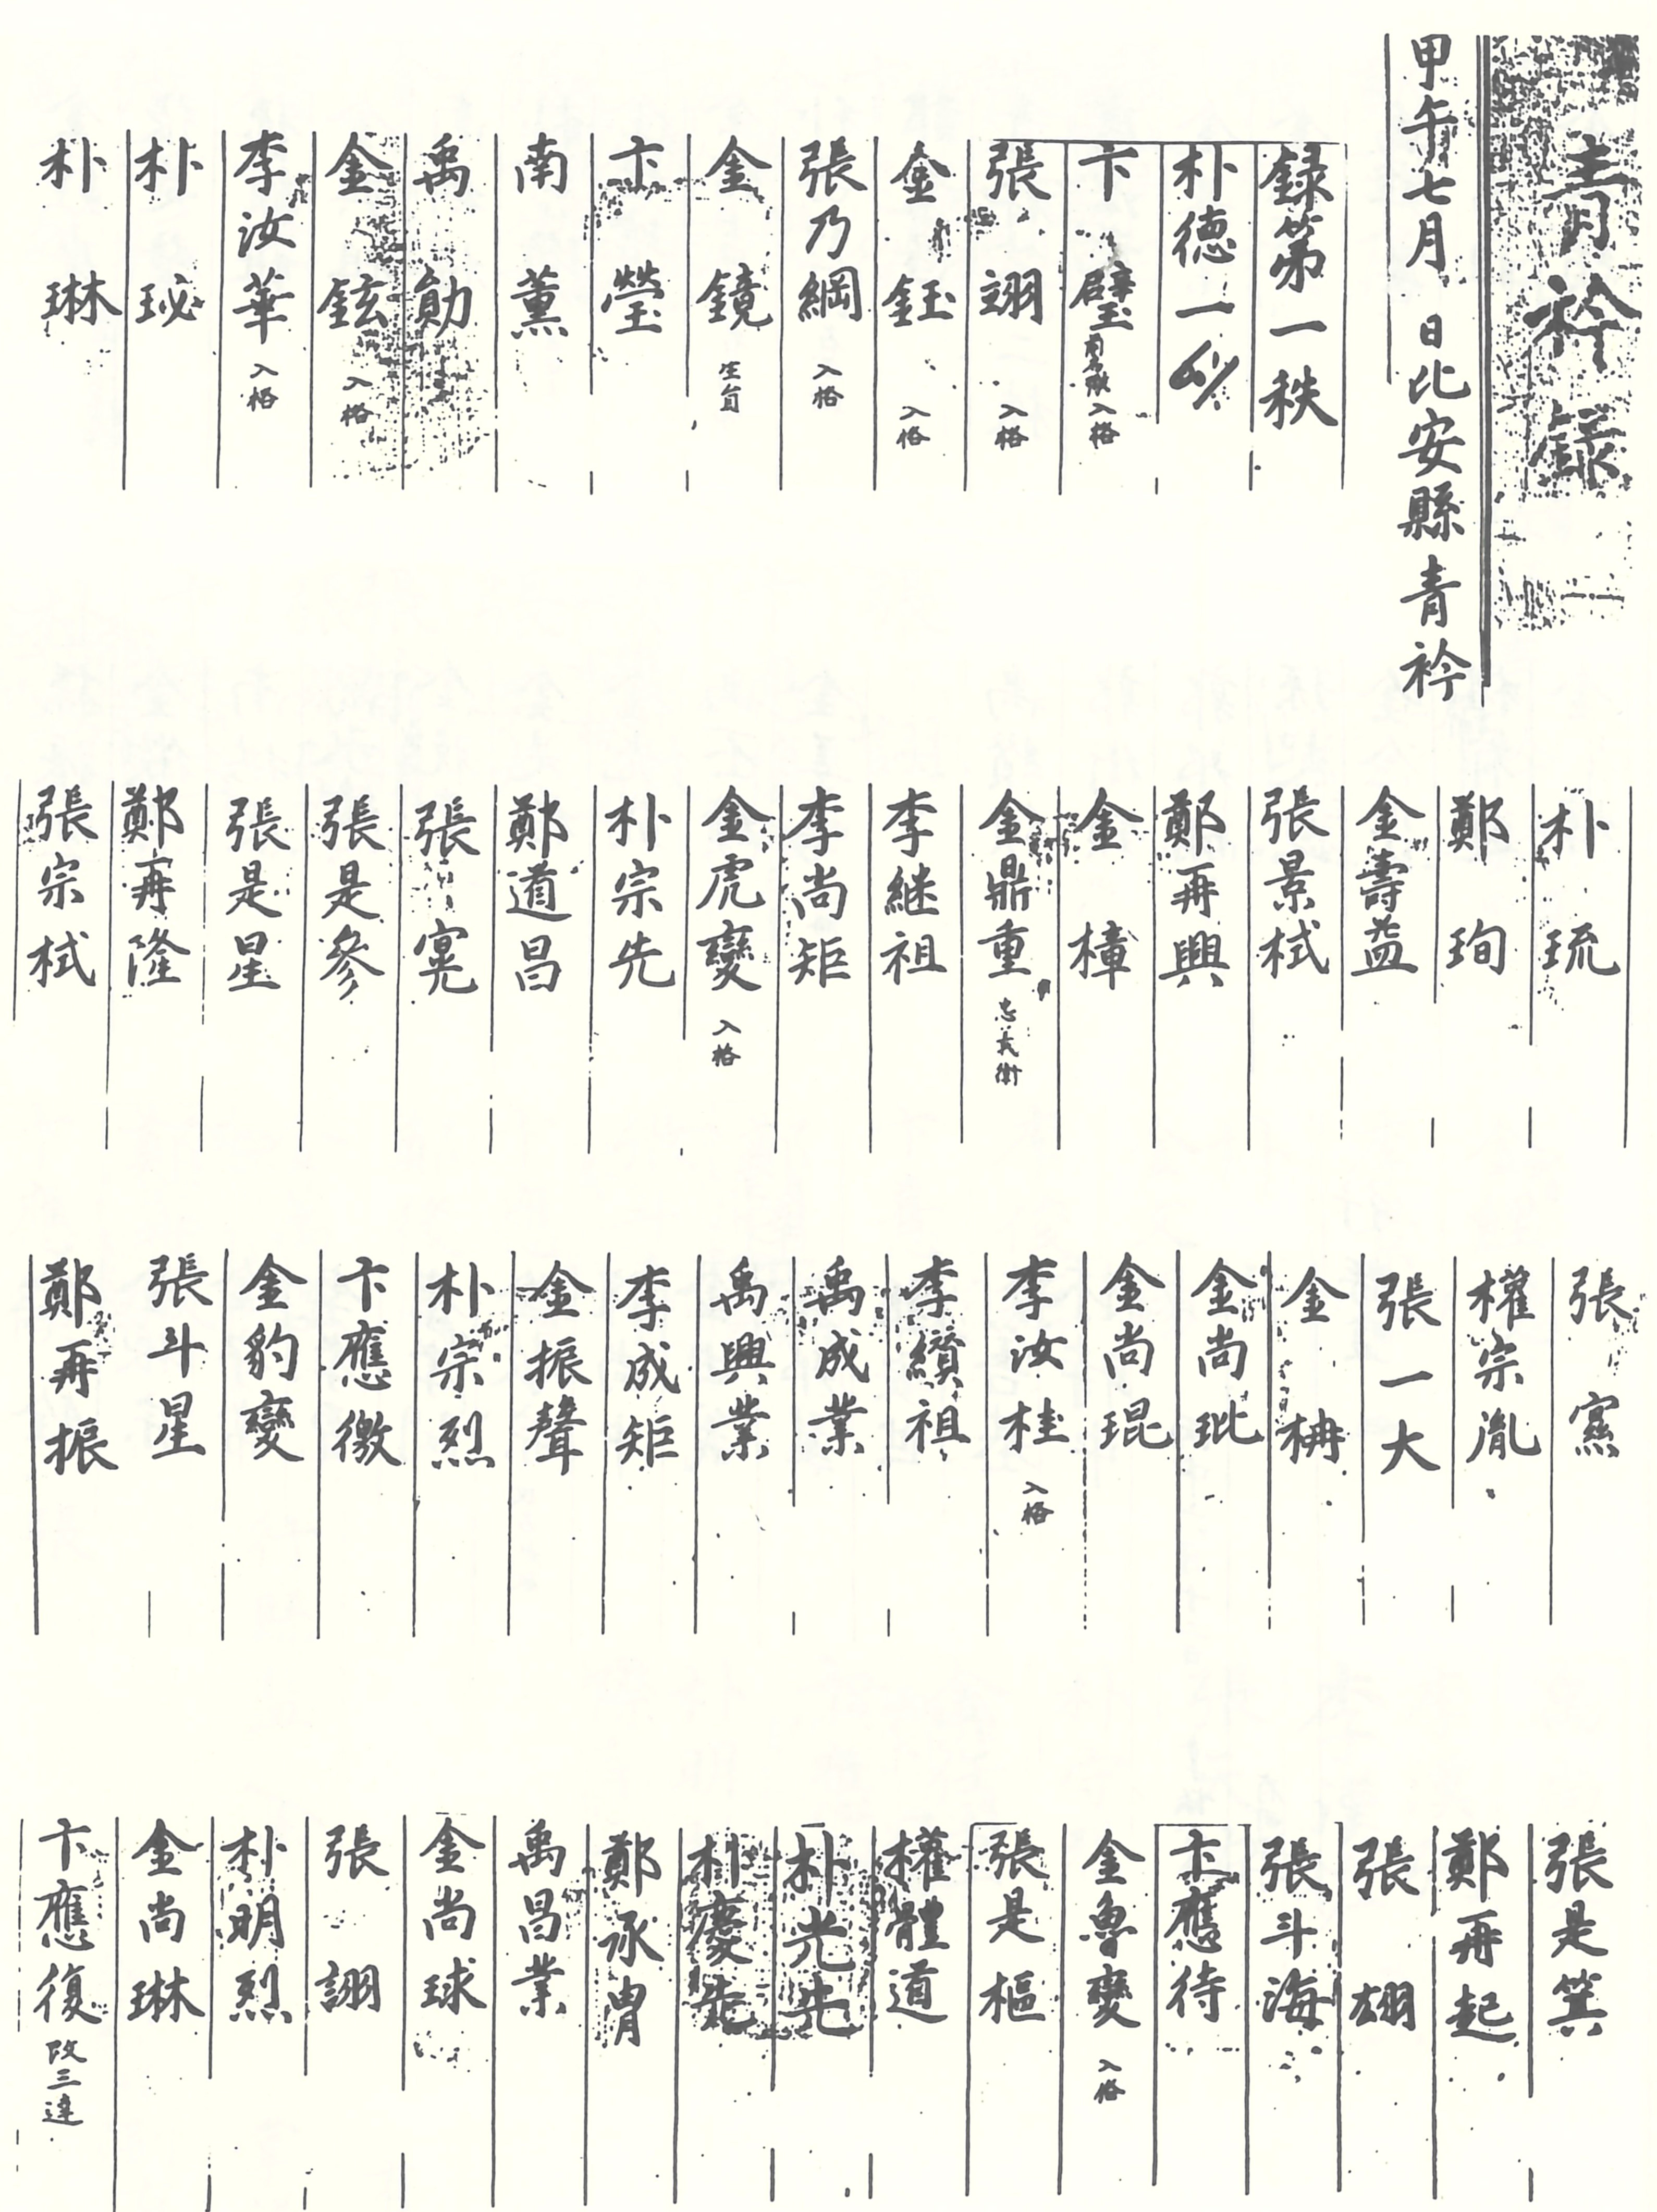 青衿錄
甲午七月 日比安縣青衿
録第一秩
朴德一
卞璧 入格
張翊 入格
金鈺 入格
張乃綱 入格
金鏡 生員
卞瑩
南薰
禹勛
金鉉 入格
李汝華 入格
朴珌
朴琳
朴琉
鄭珣
金壽益
張景栻
鄭再興
金樟
金鼎重 忠義衛
李継祖
李尚矩
金虎變 入格
朴宗先
鄭道昌
張寔
張是參
張是星
鄭再隆
張宗栻
張窯
權宗胤
張一大
金柟
金尚玭
金尚琨
李汝桂 入格
李纘祖
禹成業
禹興業
李成矩
金振聲
朴宗烈
卞應徵
金豹變
張斗星
鄭再振
張是箕
鄭再起
張翃
張斗海
卞應待
金魯變 入格
張是樞
權體道
朴光先
朴慶先
鄭承胄
禹昌業
金尚球
張詡
朴明烈
金尚琳
卞應復 改三達